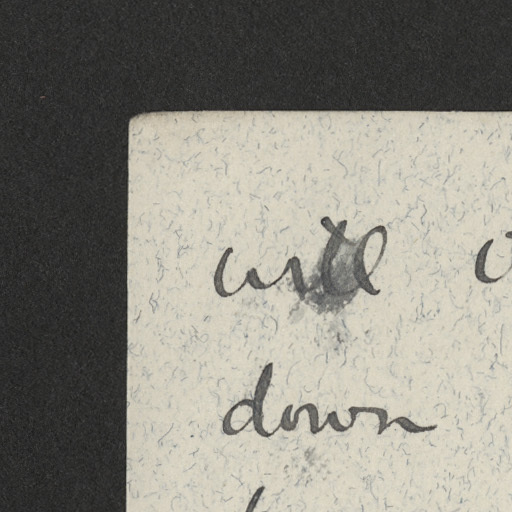 will
down